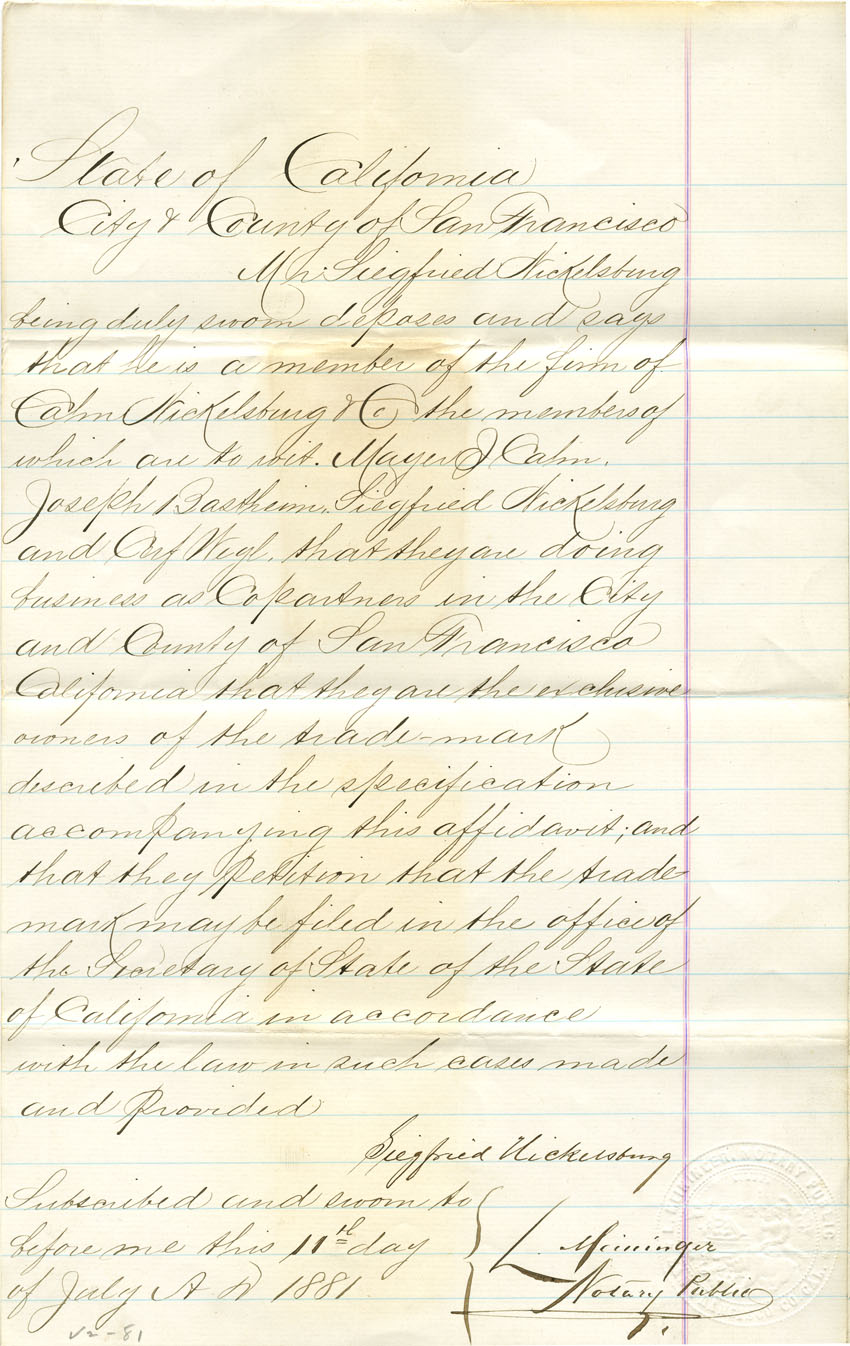 State of California
City & County of San Francisco
Mr. Siegfried Nickelsburg
being duly sworn deposes and says
that he is a member of the firm of
Cahn Nickelsburg & Co the members of
which are to wit. Mayer J Cahn.
Joseph Bastheim, Siegfried Nickelsburg
and Weyl. that they are doing
business as Copartners in the City
and County of San Francisco
California that they are the exclusive
owners of the trade-mark
described in the specification
accompanying this affidavit; and
that they petition that the trade
mark may be filed in the office of
the Secretary of State of the State
of California in accordance
with the law in such cases made
and provided
Siegfried Nickelsburg
Subscribed and sworn to
before me this 11th day
of July A D 1881
L. Meininger
Notary Public
NOTARY PUBLIC
CAL.